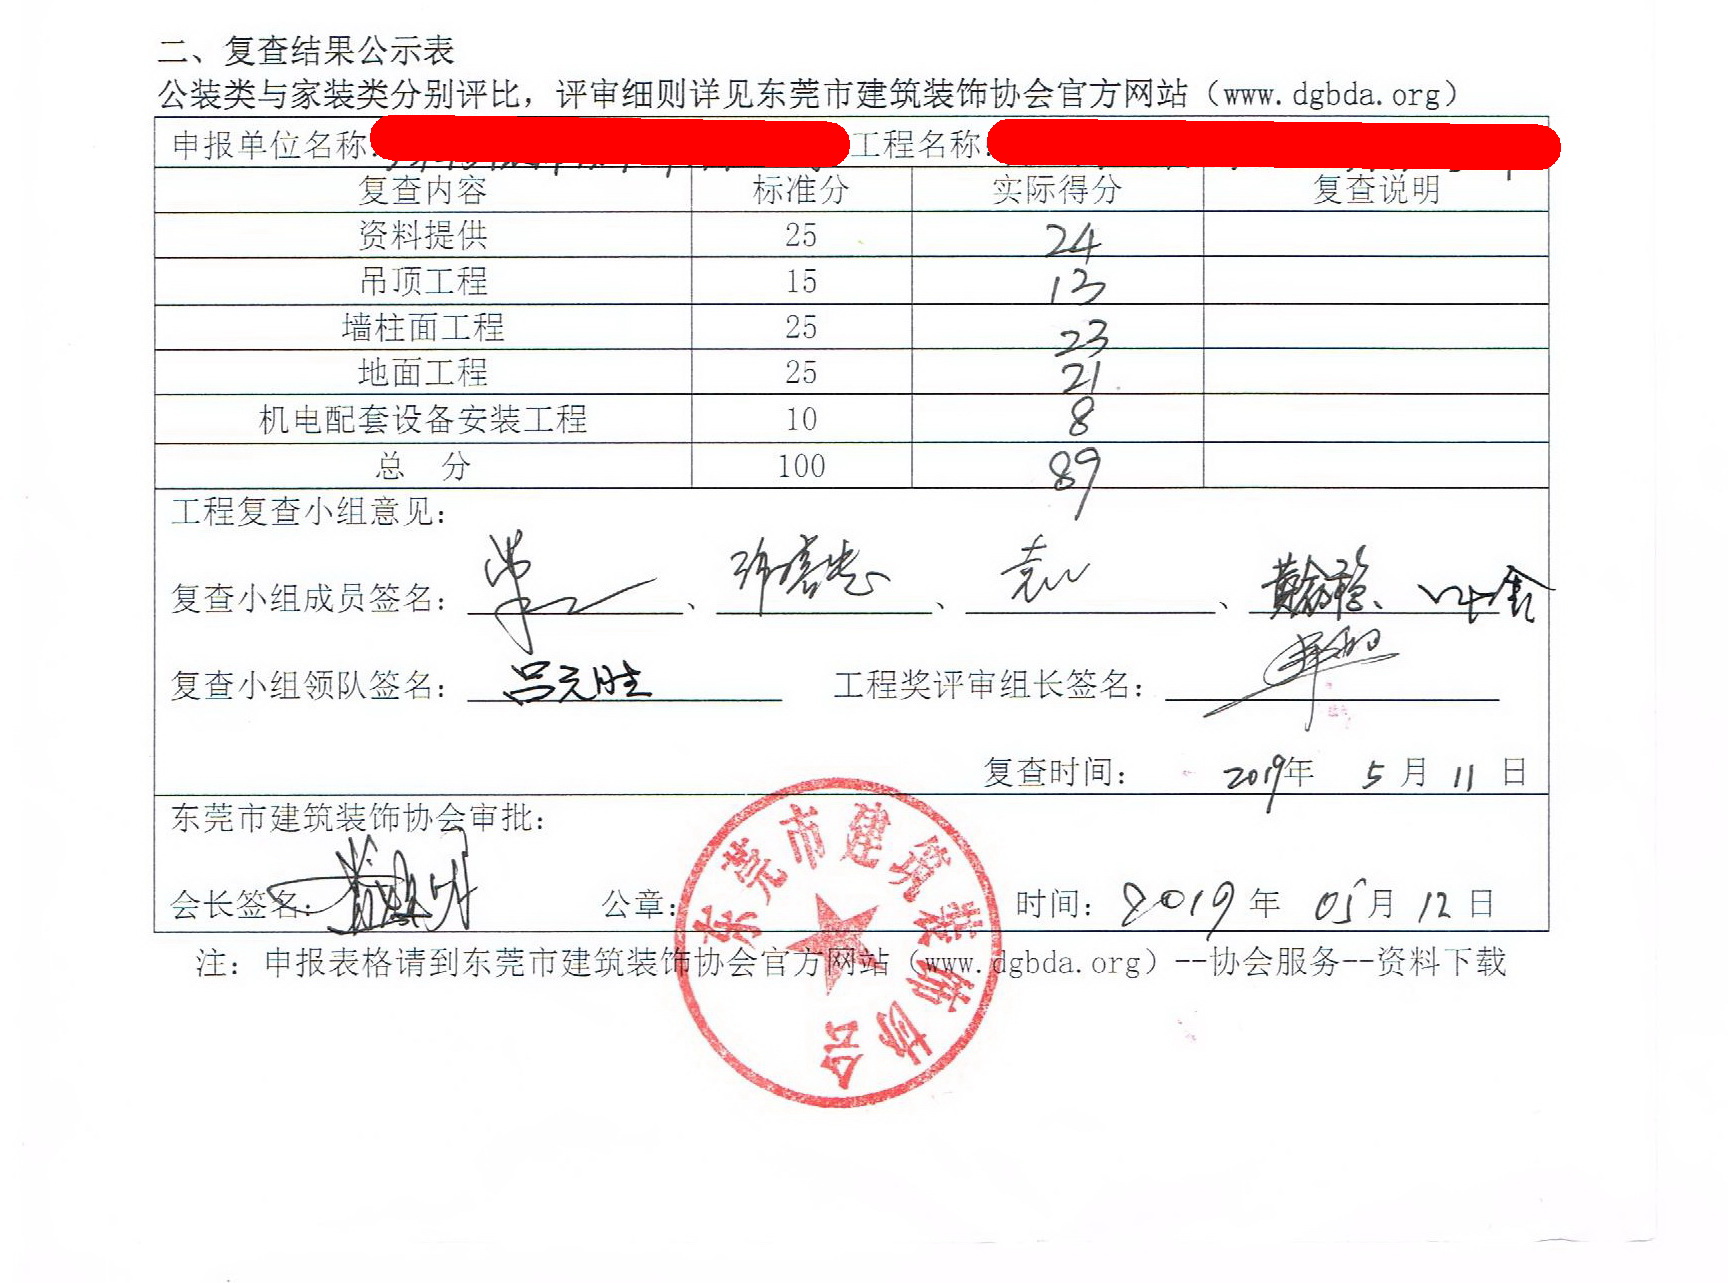 二、复查结果公示表
公装类与家装类分别评比，评审细则详见东莞市建筑装饰协会官方网站（www.dgbda.org）
申报单位名称: 工程名称:
复查内容 标准分 实际得分 复查说明
资料提供 25 24
吊顶工程 15 13
墙柱面工程 25 23
地面工程 25 21
机电配套设备安装工程 10 8
总 分 100 89
工程复查小组意见：
复查小组成员签名：、、、
复查小组领队签名：吕元胜 工程奖评审组长签名：
复查时间： 2019年 5月 11日
东莞市建筑装饰协会审批：
会长签名: 公章: 时间: 2019年 05月 12日
注: 申报表格请到东莞市建筑装饰协会官方网站（www.dgbda.org）--协会服务--资料下载
东莞市建筑装饰协会